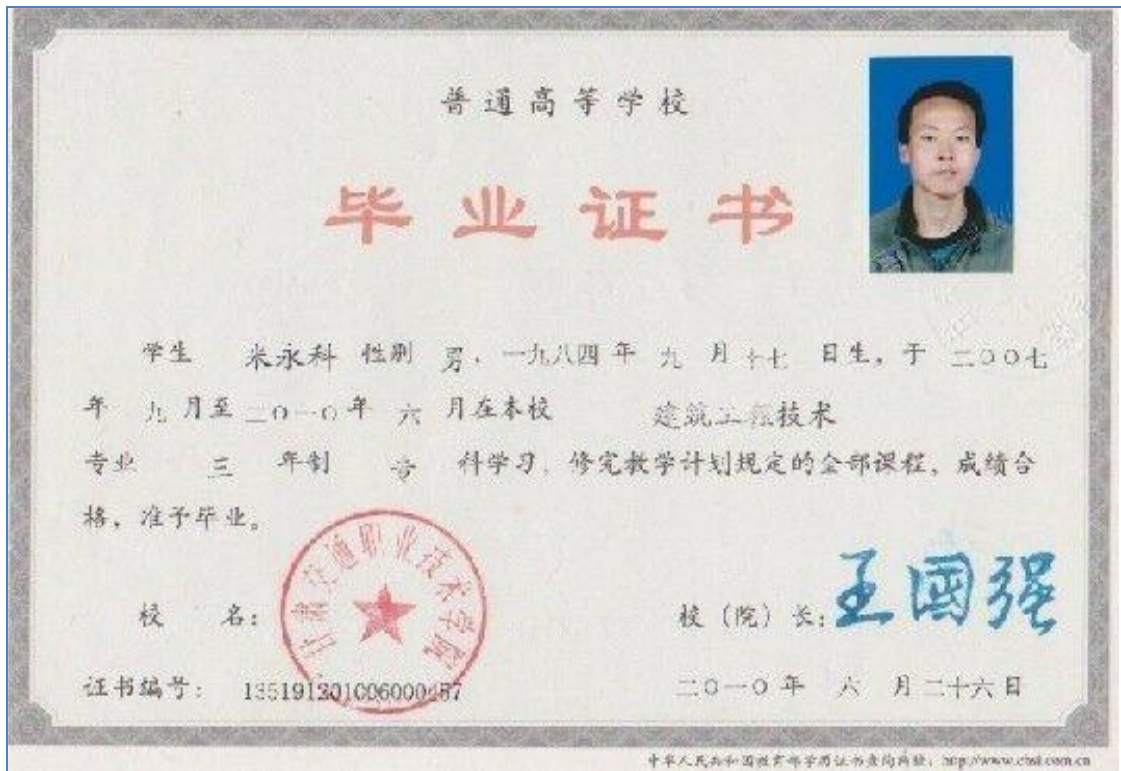 普通高等学校
毕业证书
学生 米永科 性别 男，一九八四年 九 月十七 日生，于 二〇〇七
年 九 月至二〇一〇年 六 月在本校 建筑工程技术
专业 三 年制 专 科学习，修完教学计划规定的全部课程，成绩合
格，准予毕业。
甘肃交通职业技术学院
校 名：
校（院）长：王國强
证书编号： 135191201006000457
二〇一〇年 六 月二十六日
中华人民共和国教育部学历证书查询网址：http://www.chsi.com.cn